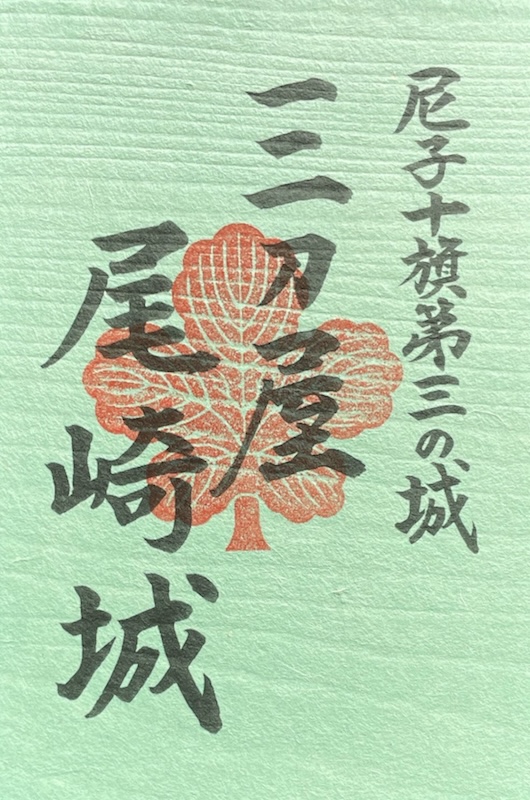 尼子十旗第三の城
三刀屋
尾崎城